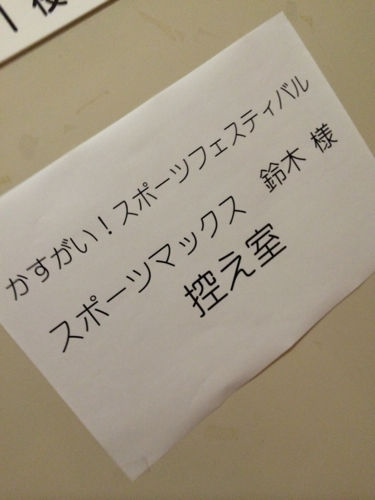 かすがい！スポーツフェスティバル
スポーツマックス 鈴木 様
控え室